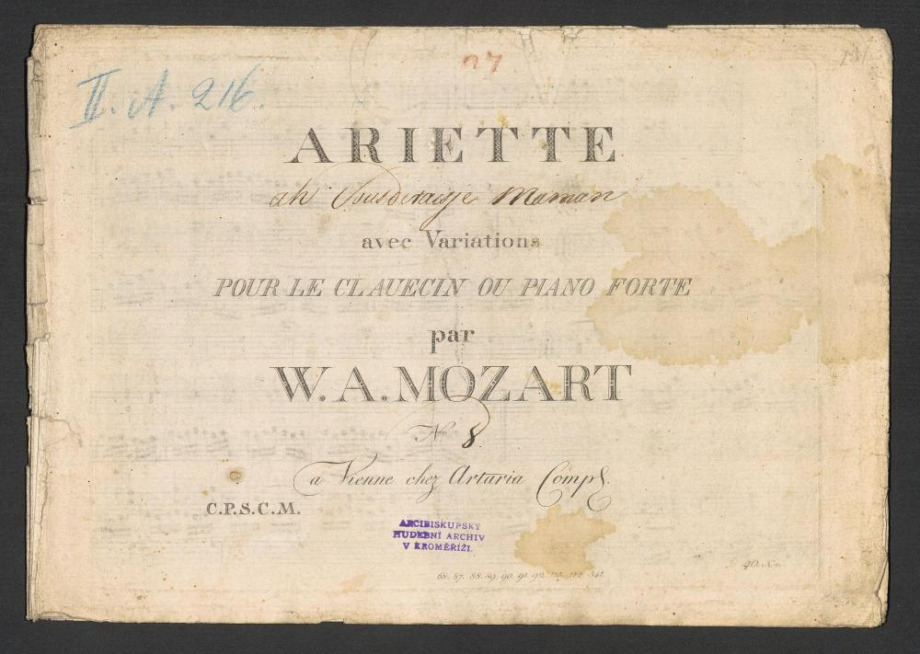 II. A. 216.
ARIETTE
ah Vous diraisje Maman
avec Variations
POUR LE CLAUECIN OU PIANO FORTE
par
W. A. MOZART
N 8.
a Vienne chez Artaria Comp
C.P.S.C.M.
ARCIBISKUPSKÝ
HUDEBNÍ ARCHIV
V KROMĚŘÍŽI.